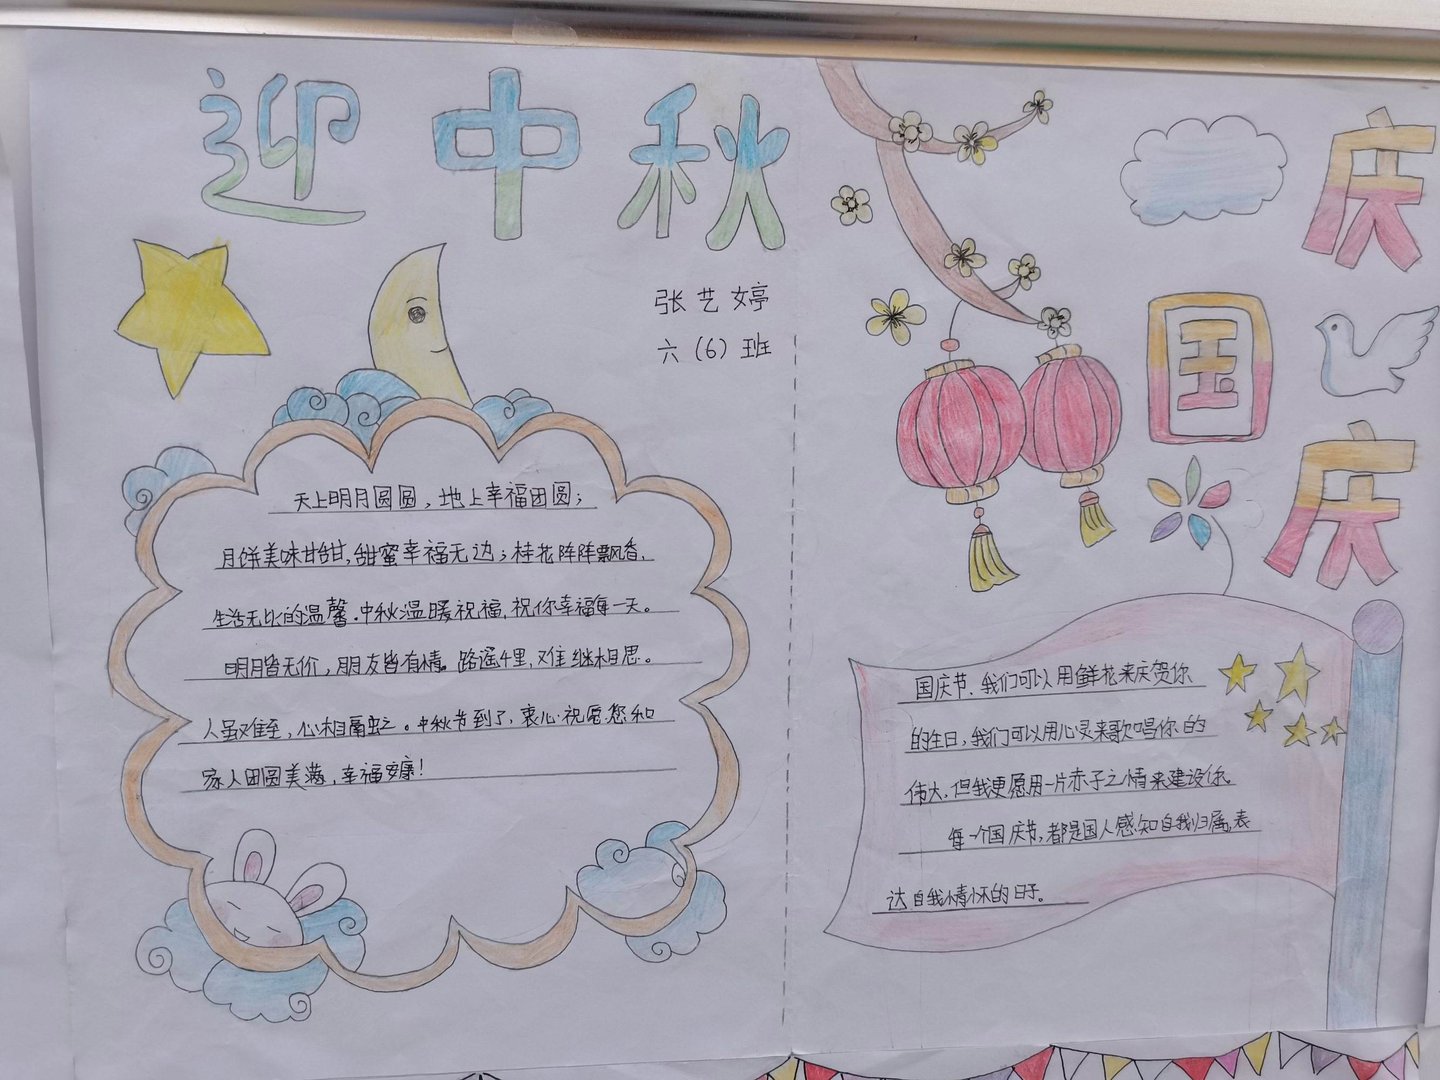 迎中秋
张艺婷
六（6）班
天上明月圆圆，地上幸福团圆；
月饼美味甘甜，甜蜜幸福无边；桂花阵阵飘香，
生活无比的温馨。中秋温暖祝福，祝你幸福每一天。
明月皆无价，朋友皆有情。路遥千里，难继相思。
人虽难至，心相牵。中秋节到了，衷心祝愿您和
家人团圆美满，幸福安康！
庆
国
庆
国庆节，我们可以用鲜花来庆贺你
的生日，我们可以用心灵来歌唱你的
伟大，但我更愿用一片赤子之情来建设你。
每一个国庆节，都是国人感知自我归属，表
达自我情怀的日子。